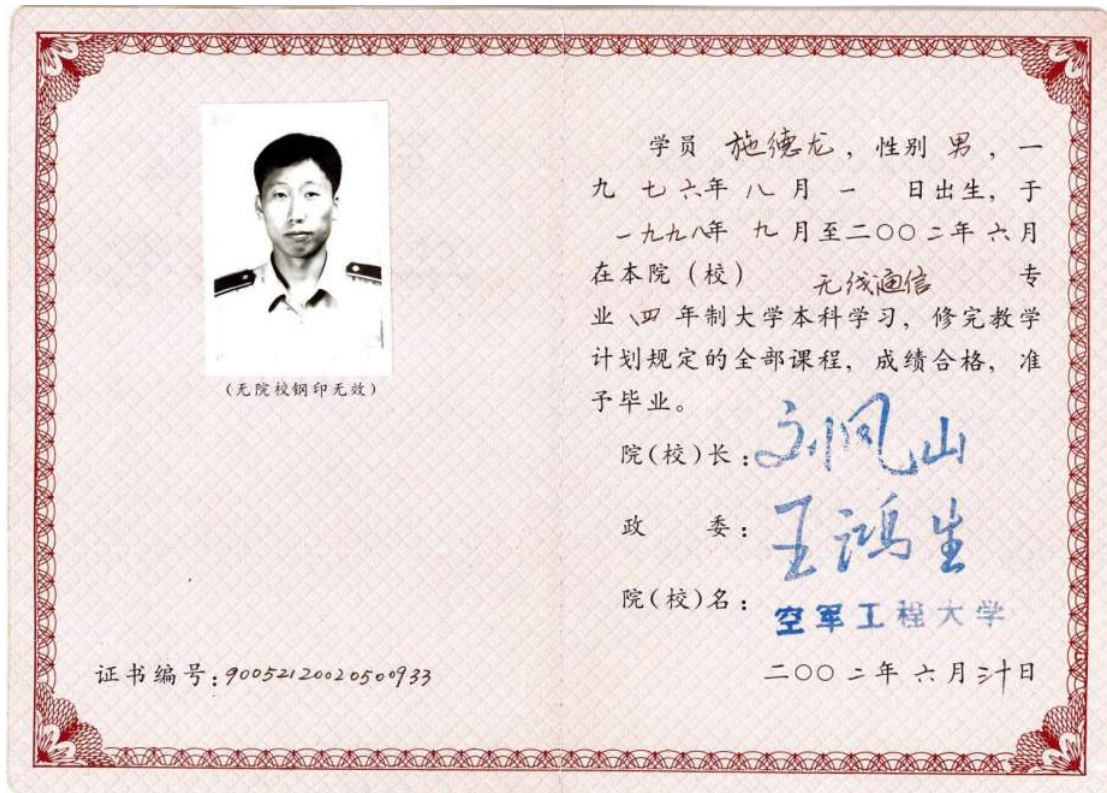 (无院校钢印无效)
证书编号:90052120020500933
学员 施德龙,性别 男,一
九 七六年 八 月 一 日出生,于
一九九八年 九 月至二〇〇二年 六 月
在本院(校) 无线通信 专
业 四 年制大学本科学习,修完教学
计划规定的全部课程,成绩合格,准
予毕业。
院(校)长:刘凤山
政 委:王鸿生
院(校)名:空军工程大学
二〇〇二年 六 月 三十日